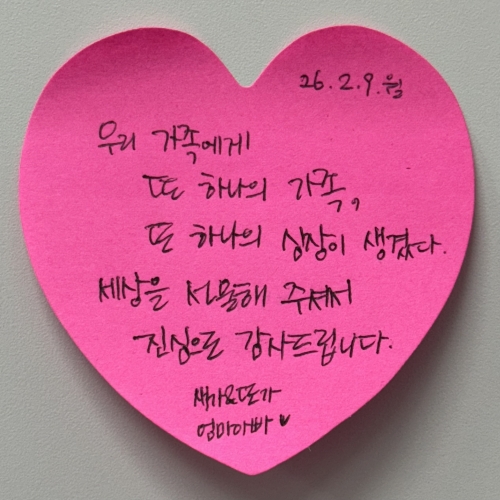 26.2.9.월
우리 가족에게
또 하나의 가족,
또 하나의 심장이 생겼다.
세상을 선물해 주셔서
진심으로 감사드립니다.
엄마아빠♥